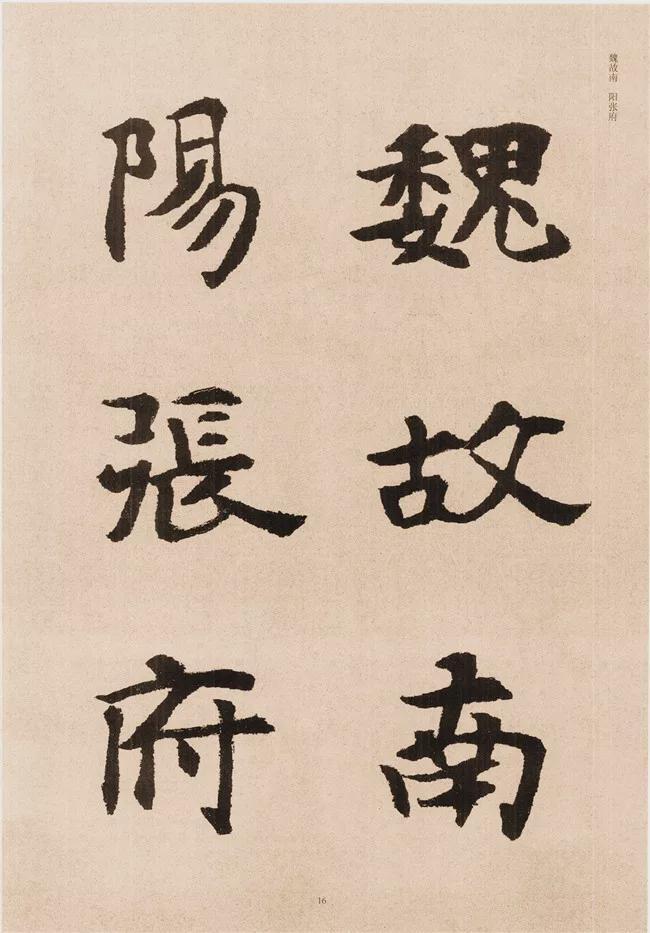 魏故南 阳张府
魏故南
陽張府
16